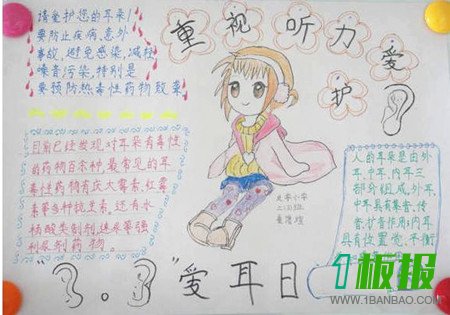 重视听力爱
护
请爱护您的耳朵!
要防止疾病,意外
事故,避免感染,减轻
噪音污染,特别是
要预防热毒性药物致聋
目前已经发现,对耳朵有毒性
的药物百余种,最常见的耳
毒性药物有庆大霉素,红霉
素等多种抗生素,还有水
杨酸类制剂,速尿等强
利尿剂药物。
北李小学
人的耳朵是由外
耳,中耳,内耳三
部分组成,外耳,
中耳具有集音、传
音、扩音作用;内耳
具有位置觉、平衡
"3.3"爱耳日
1板报
WWW.1BANBAO.COM